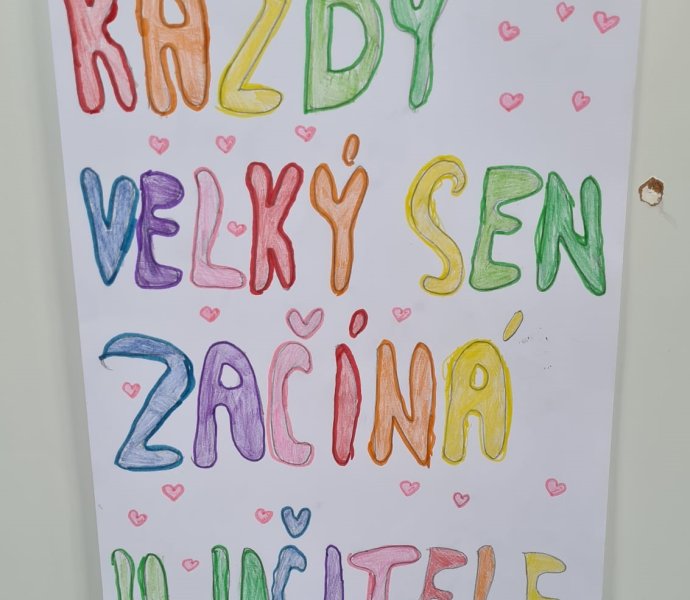 KAŽDÝ
VELKÝ SEN
ZAČÍNÁ
U UČITELE